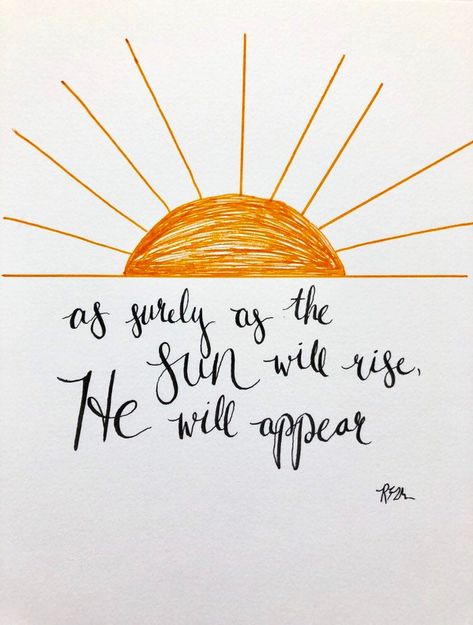 as surely as the
sun will rise,
He will appear